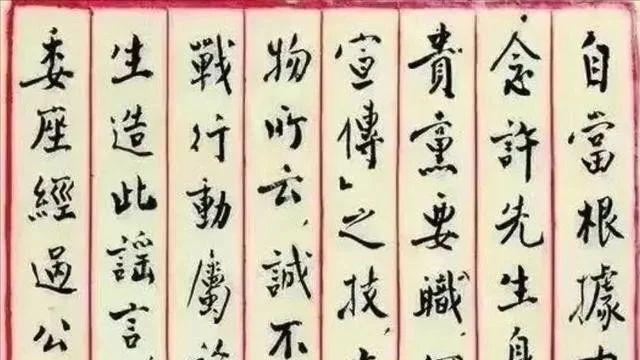 自當根據
念許先生
貴黨要職
宣傳」之技
物所云，誠不
戰行動屬
生造此謠言
委座經過公